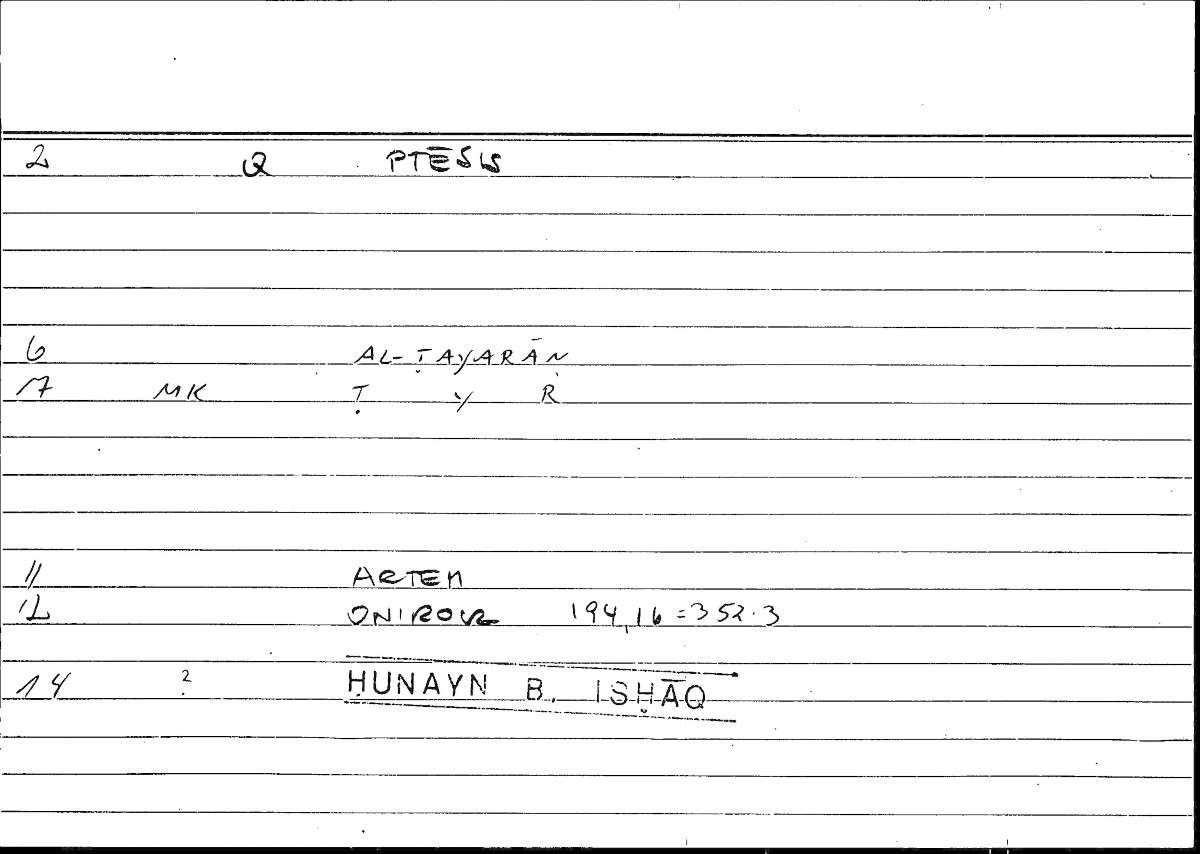 2 Q PTĒSIS
6 AL-ṬAYARĀN
7 MK Ṭ Y R
11 ARTEM
12 ONIROCR 194,16=352.3
14 ? ḤUNAYN B. ISḤĀQ